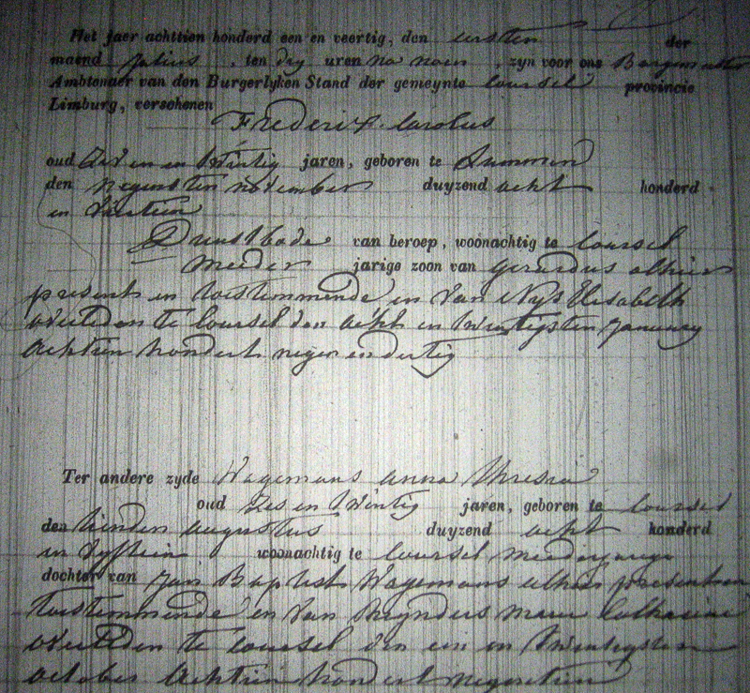 Het jaer achttien honderd een en veertig, den eersten der
maend Julius, ten dry uren na noen, zyn voor ons Burgemeester
Ambtenaer van den Burgerlyken Stand der gemeynte Coursel provincie
Limburg, verschenen
Frederix Carolus
oud en twintig jaren, geboren te Lummen
den negensten november duyzend acht honderd
en
Dienstbode van beroep, woonachtig te Coursel
meeder jarige zoon van Gerardus alhier
present en toestemmende en van Nys Elisabeth
overleden te Coursel den acht en twintigsten January
achtien hondert negen en dertig
Ter andere zyde Wagemans Anna Thresia
oud Zes en twintig jaren, geboren te Coursel
den tienden augustus duyzend acht honderd
en vyftien woonachtig te Coursel meederjarige
dochter van Jan Baptist Wagemans alhier present en
toestemmende en van Reynders Maria Catharina
overleden te Coursel den een en twintigsten
october achtien hondert negentien